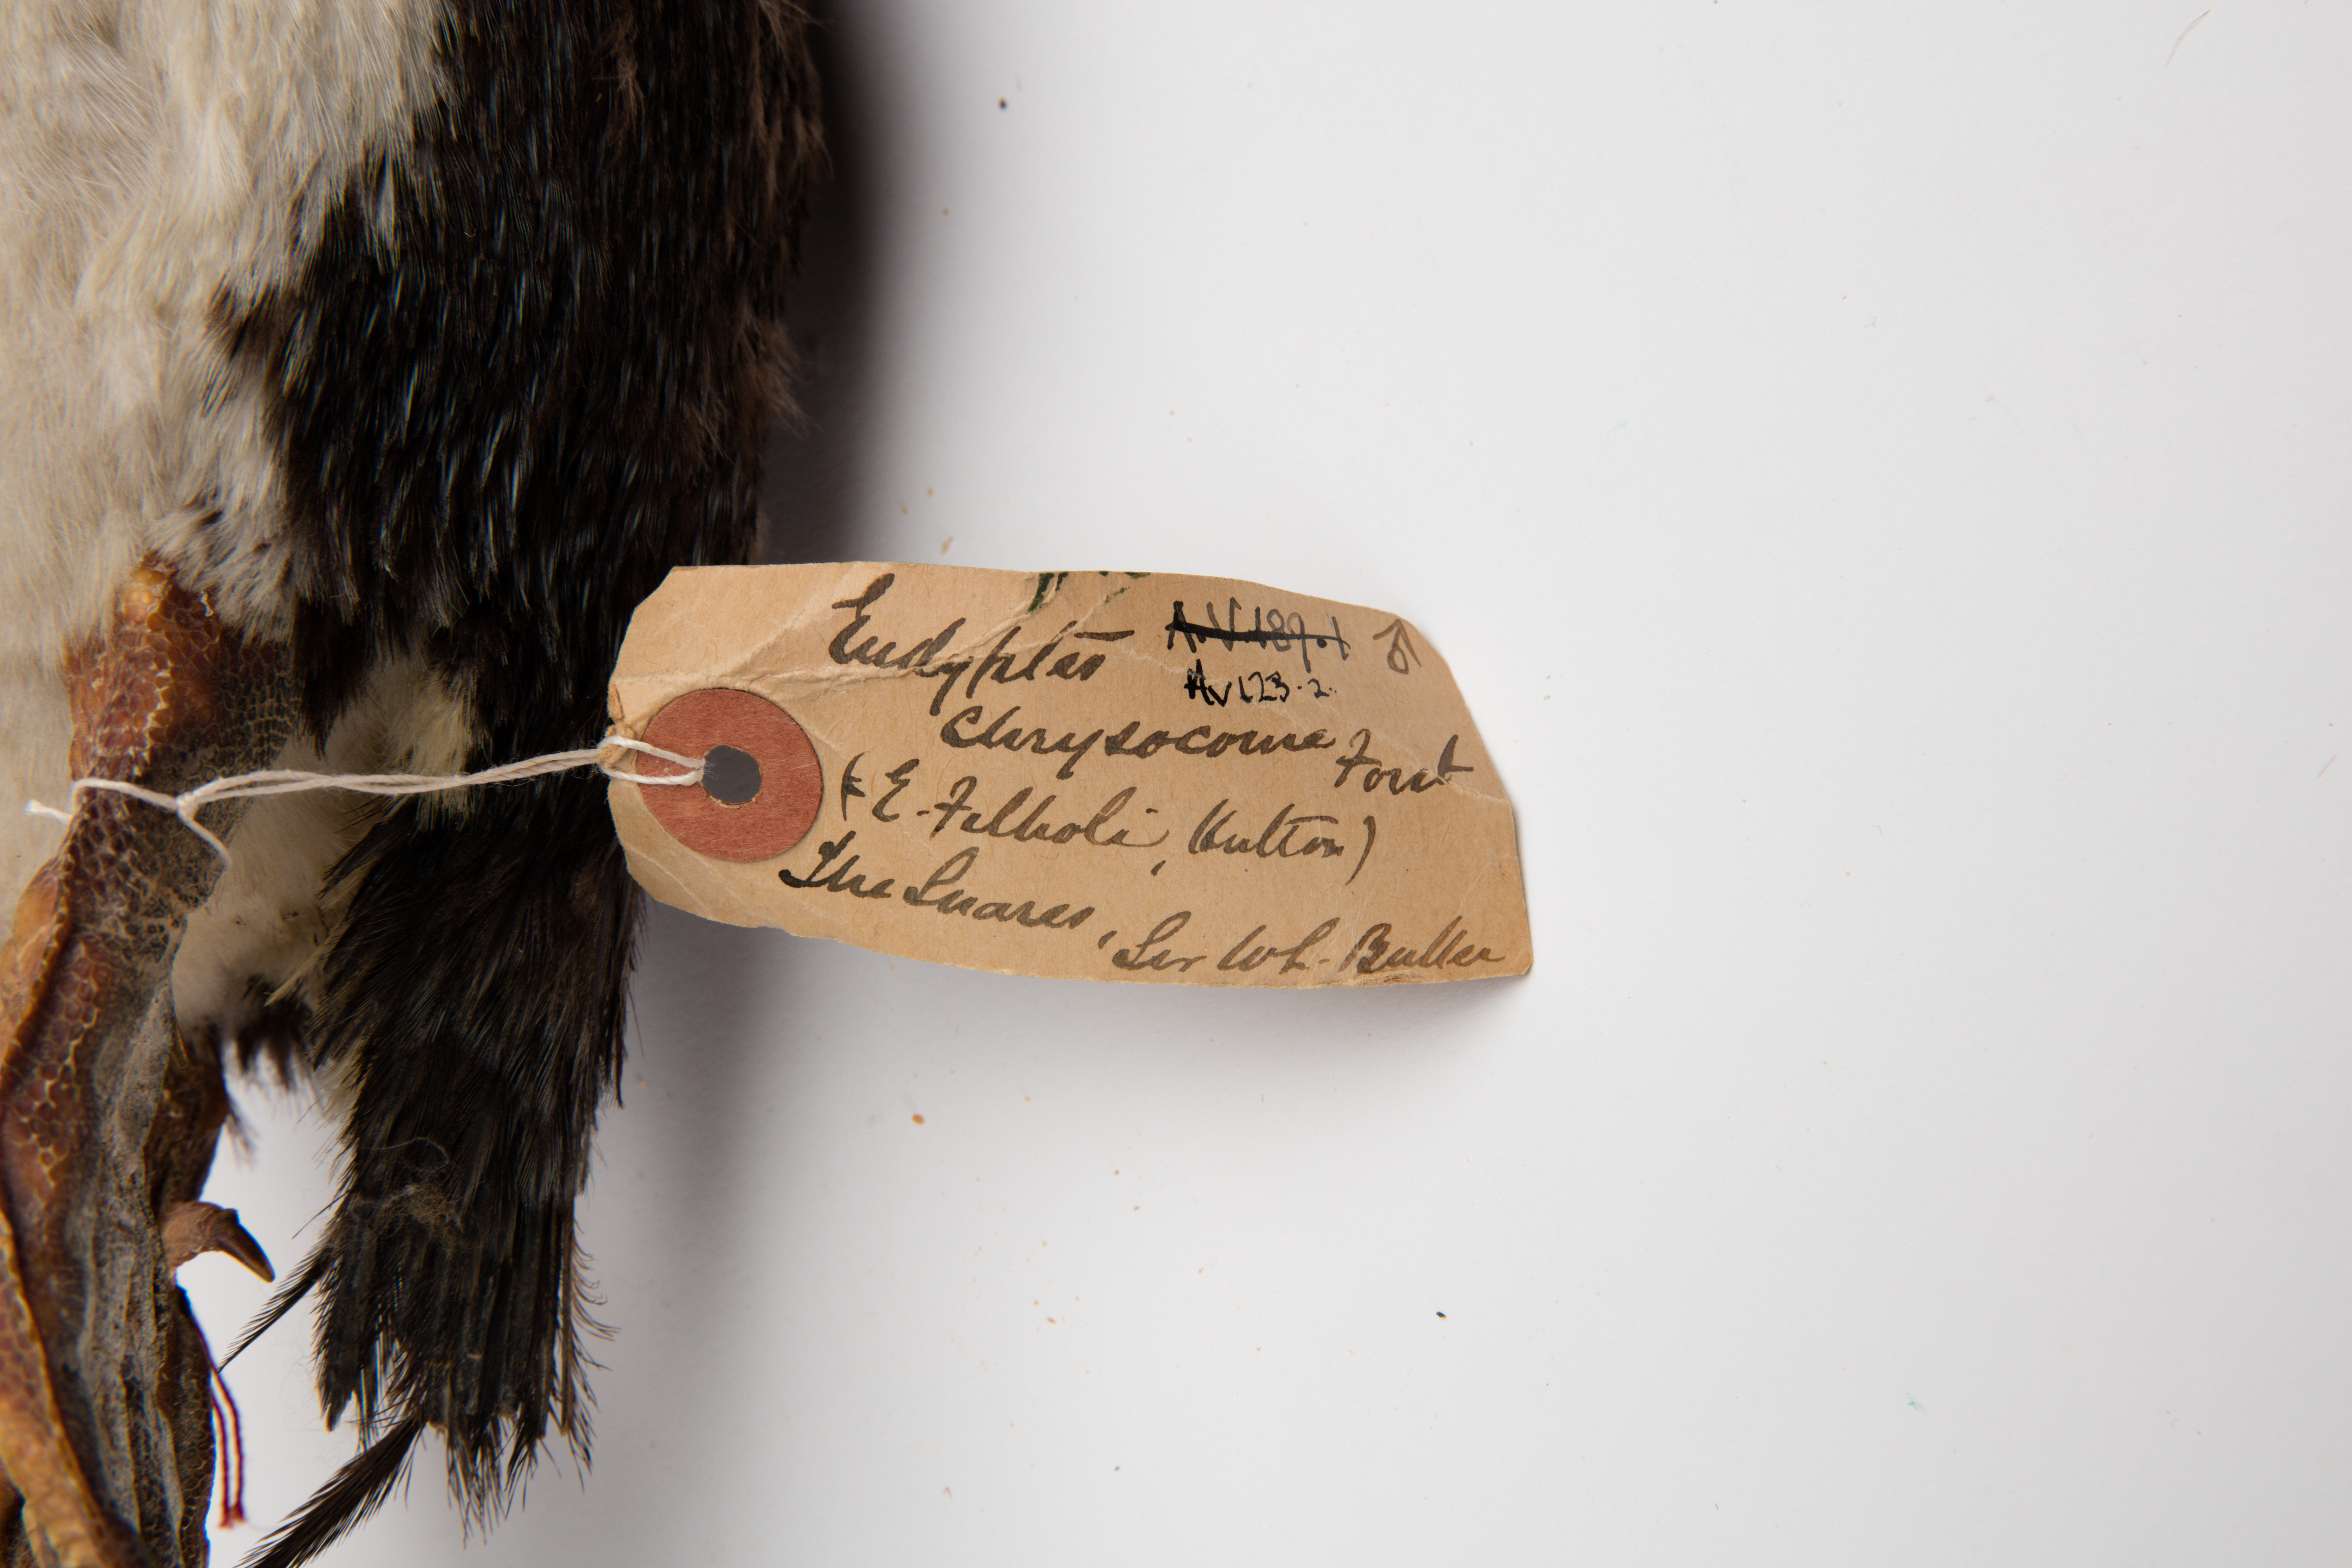 Eudyptes A.V.189.1 ♂
Av 123.2.
Chrysocome Forst
(E. Filholi, Hutton)
The Snares, Sir W L. Buller